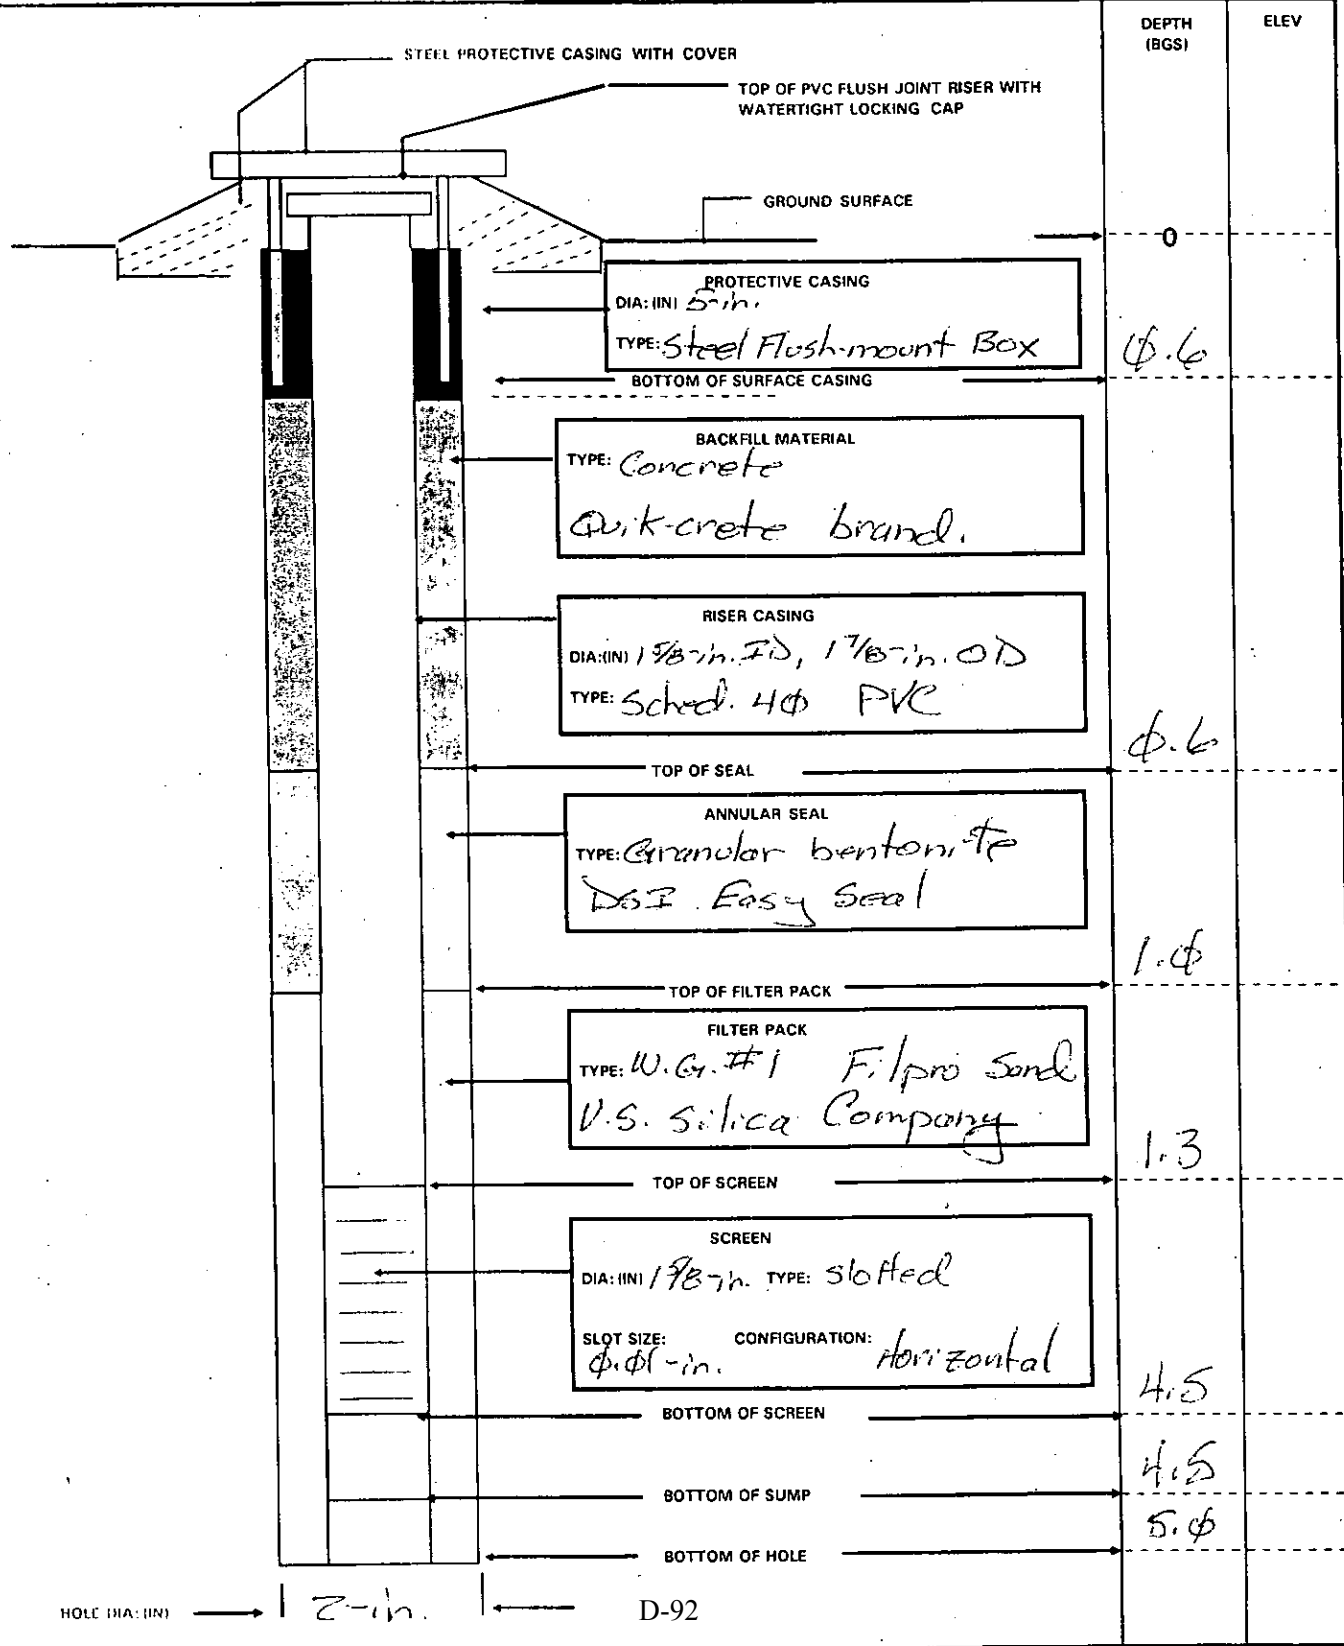 DEPTH
(BGS)
ELEV
STEEL PROTECTIVE CASING WITH COVER
TOP OF PVC FLUSH JOINT RISER WITH
WATERTIGHT LOCKING CAP
GROUND SURFACE
0
PROTECTIVE CASING
DIA:(IN) 5-in.
TYPE: Steel Flush-mount Box
0.6
BOTTOM OF SURFACE CASING
BACKFILL MATERIAL
TYPE: Concrete
Quik-crete brand.
RISER CASING
DIA:(IN) 1 5/8-in. ID, 1 7/8-in. OD
TYPE: Sched. 40 PVC
0.6
TOP OF SEAL
ANNULAR SEAL
TYPE: Granular bentonite
DSI Easy Seal
1.0
TOP OF FILTER PACK
FILTER PACK
TYPE: W.G. #1 Filpro Sand
U.S. Silica Company
1.3
TOP OF SCREEN
SCREEN
DIA:(IN) 1 5/8-in. TYPE: Slotted
SLOT SIZE: CONFIGURATION:
0.01-in. Horizontal
4.5
BOTTOM OF SCREEN
4.5
BOTTOM OF SUMP
5.0
BOTTOM OF HOLE
HOLE DIA:(IN) 2-in. D-92